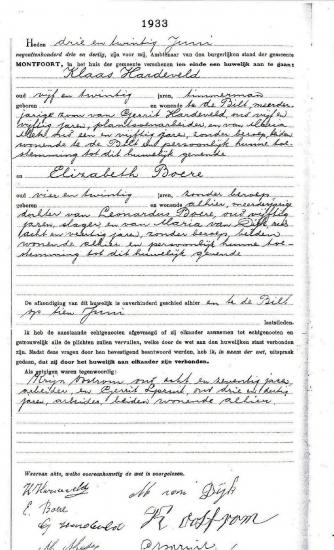 1933
Heden drie en twintig Juni
negentienhonderd drie en dertig, zijn voor mij, Ambtenaar van den burgerlijken stand der gemeente
MONTFOORT, in het huis der gemeente verschenen ten einde een huwelijk aan te gaan:
Klaas Hardeveld
oud vijf en twintig jaren, timmerman
geboren en wonende te de Bilt, meerder-
jarige zoon van Gerrit Hardeveld, oud vijf en
vijftig jaren, en van Maria
oud een en vijftig jaren, zonder beroep, beiden
wonende te de Bilt en persoonlijk hunne toe-
stemming tot dit huwelijk gevende
en
Elizabeth Boere
oud vier en twintig jaren, zonder beroep
geboren en wonende alhier, meerderjarige
dochter van Leonardus Boere, oud vijftig
jaren, slager en van Maria van Dijk, oud
acht en veertig jaren, zonder beroep, beiden
wonende alhier en persoonlijk hunne toe-
stemming tot dit huwelijk gevende
De afkondiging van dit huwelijk is onverhinderd geschied alhier en te de Bilt
op tien Juni
laatstleden.
Ik heb de aanstaande echtgenooten afgevraagd of zij elkander aannemen tot echtgenooten en
getrouwelijk alle de plichten zullen vervullen, welke door de wet aan den huwelijken staat verbonden
zijn. Nadat deze vragen door hen bevestigend beantwoord werden, heb ik, in naam der wet, uitspraak
gedaan, dat zij door het huwelijk aan elkander zijn verbonden.
Als getuigen waren tegenwoordig:
oud acht en zeventig jaren,
arbeider, en Gerrit oud drie en dertig
jaren, arbeider, beiden wonende alhier.
Waarvan akte, welke overeenkomstig de wet is voorgelezen.
K Hardeveld M van Dijk
E. Boere
G Hardeveld